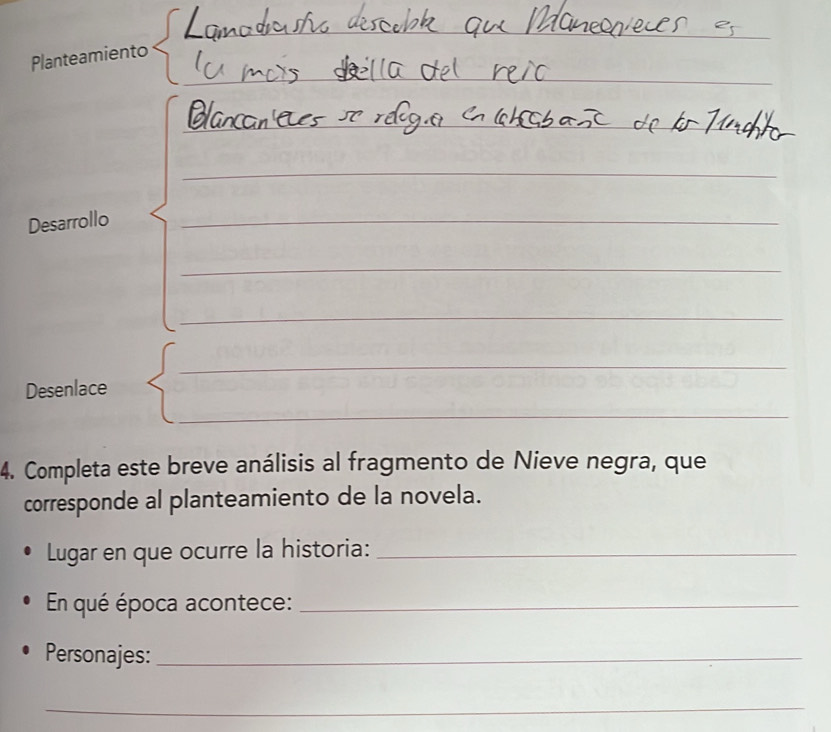 Lamadrastra descubre que Blancanieves es
Planteamiento
la mas bella del reio
Blancanieves se refugia en de los
Desarrollo
Desenlace
4. Completa este breve análisis al fragmento de Nieve negra, que
corresponde al planteamiento de la novela.
• Lugar en que ocurre la historia:
• En qué época acontece:
• Personajes: